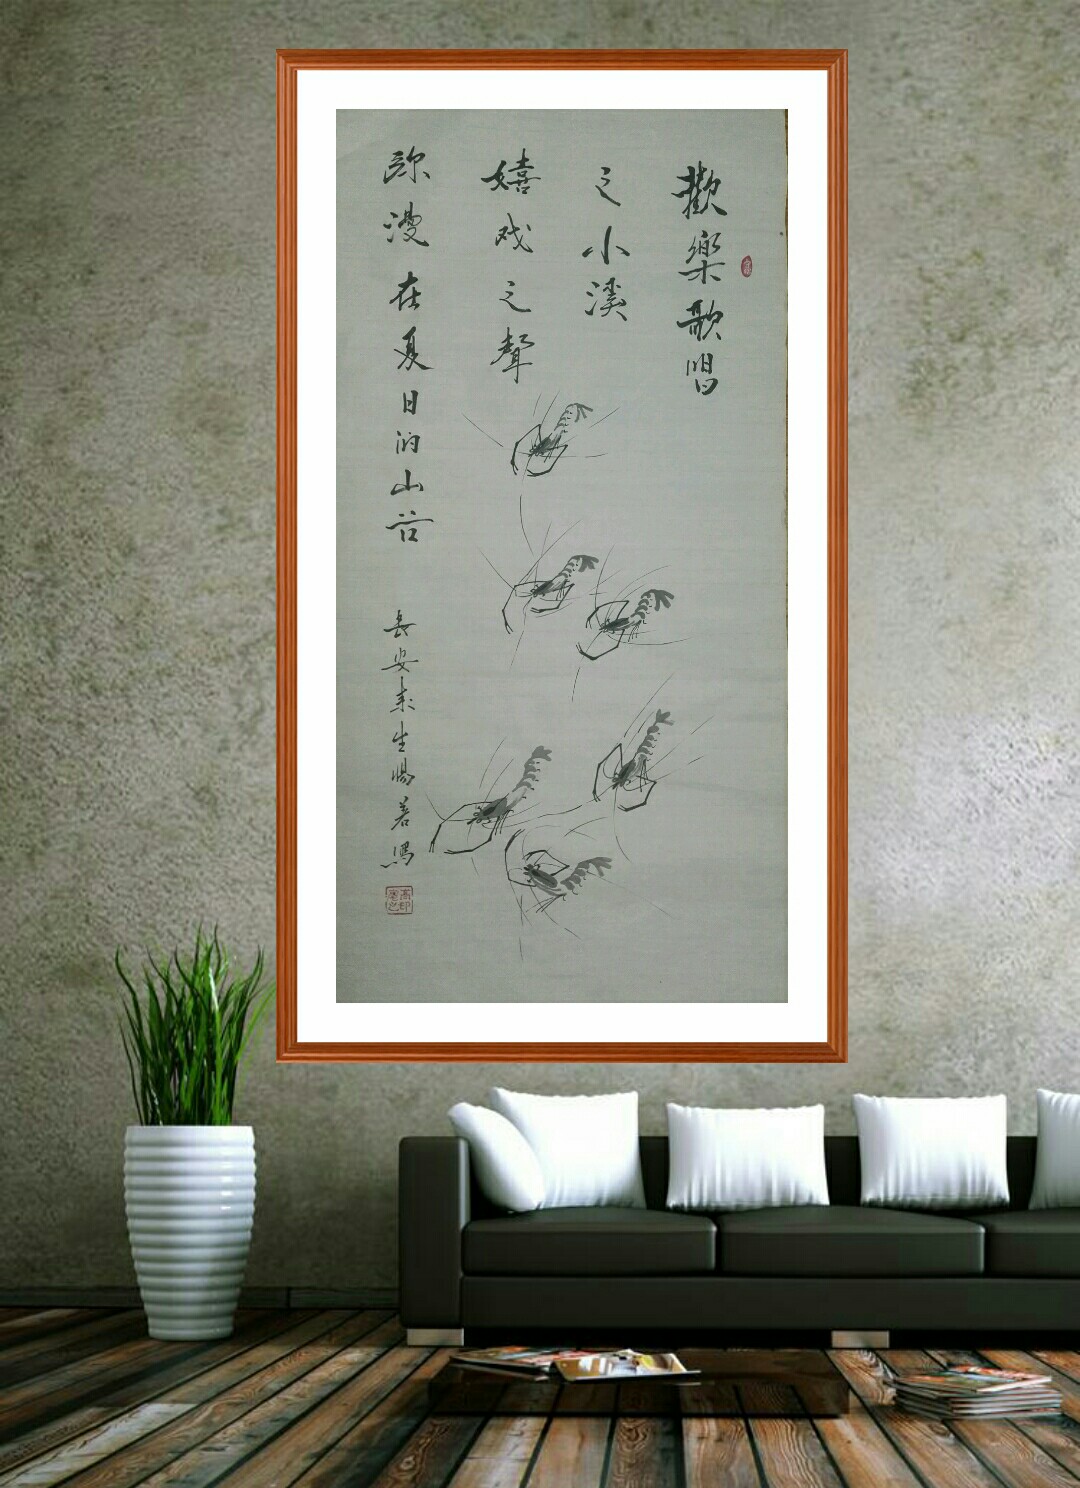 歡樂歌唱
之小溪
嬉戏之聲
弥漫在夏日的山谷
長安